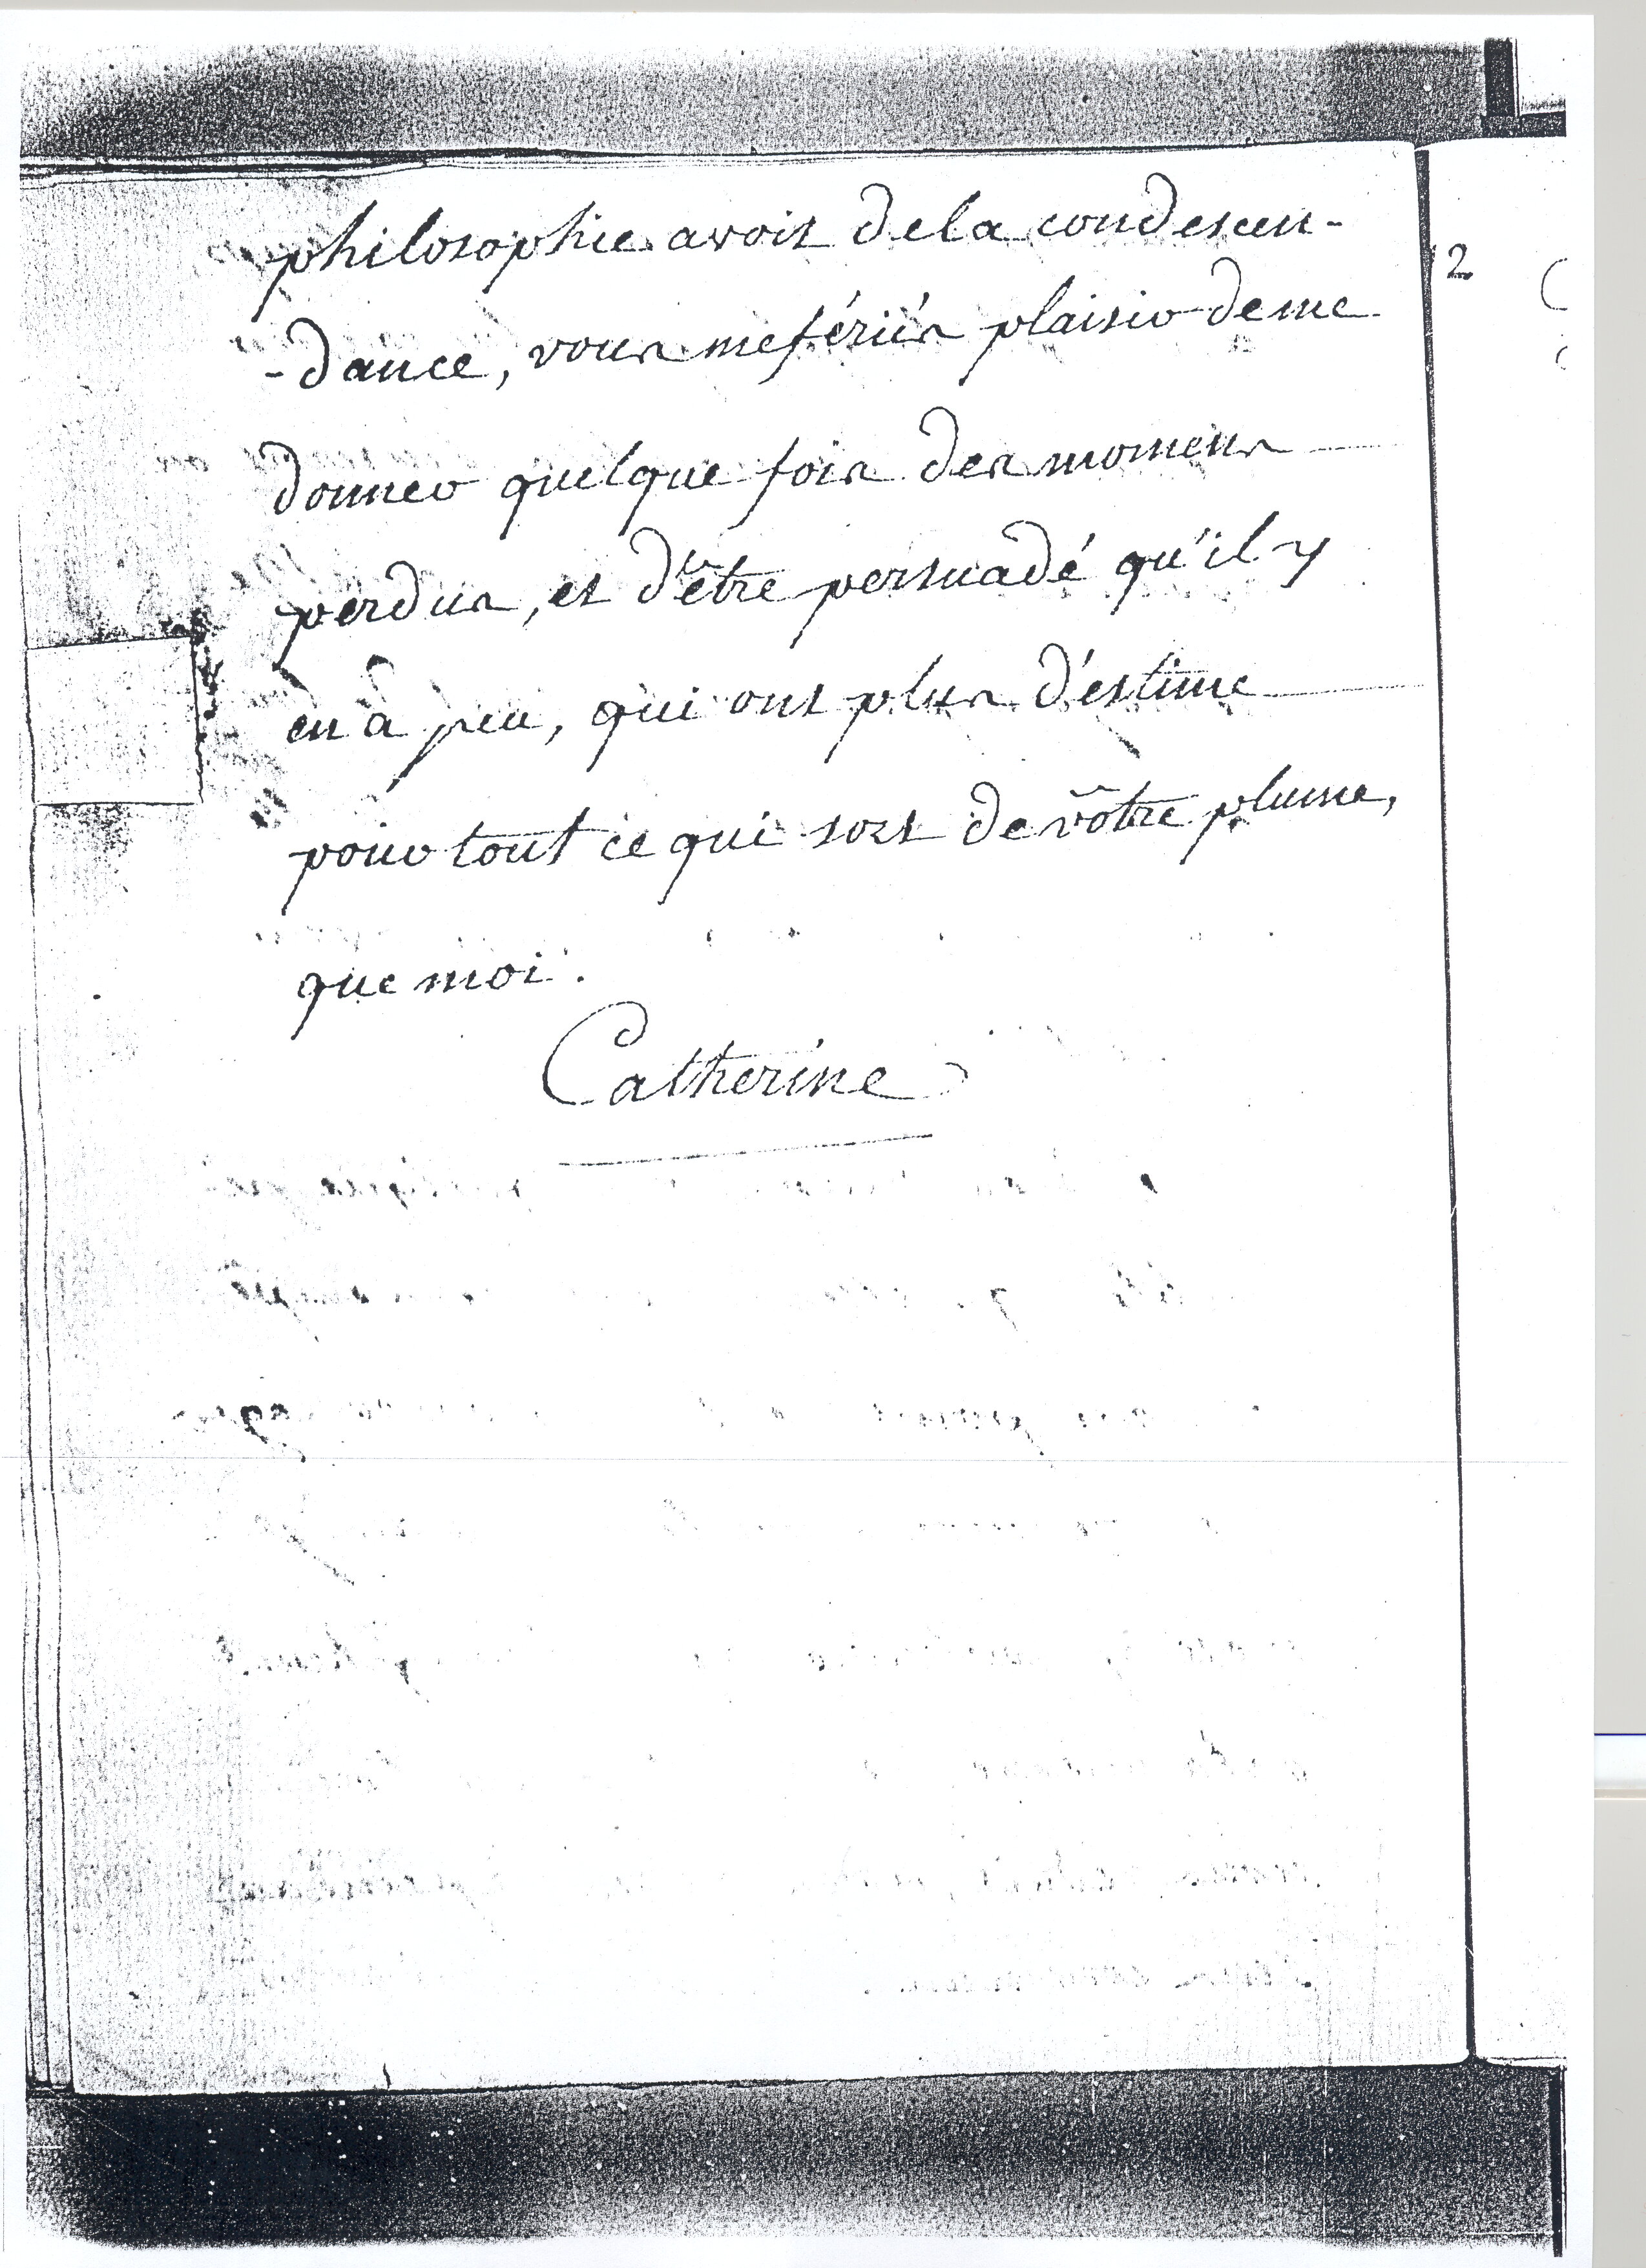 philosophie avoit de la condescen-
-dance, vous me fériés plaisir de me
donner quelque fois des momens
perdus, et d'être persuadé qu'il y
en a peu, qui ont plus d'estime
pour tout ce qui sort de vôtre plume,
que moi.
Catherine
2